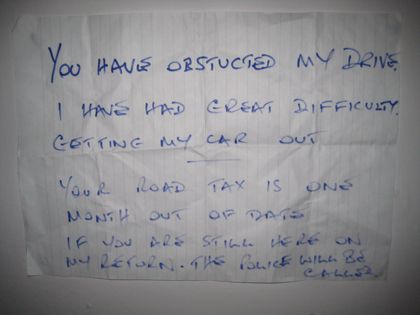 YOU HAVE OBSTUCTED MY DRIVE.
I HAVE HAD GREAT DIFFICULTY.
GETTING MY CAR OUT
YOUR ROAD TAX IS ONE
MONTH OUT OF DATE
IF YOU ARE STILL HERE ON
MY RETURN. THE POLICE WILL BE
CALLED